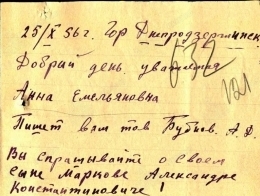 25/X 56 г. Гор Днепродзержинск
632
Добрый день уважаемая
121
Анна Емельяновна
Пишет вам тов Бубнов. А. Д.
Вы спрашиваете о своем
сыне Маркове Александре
Константиновиче!